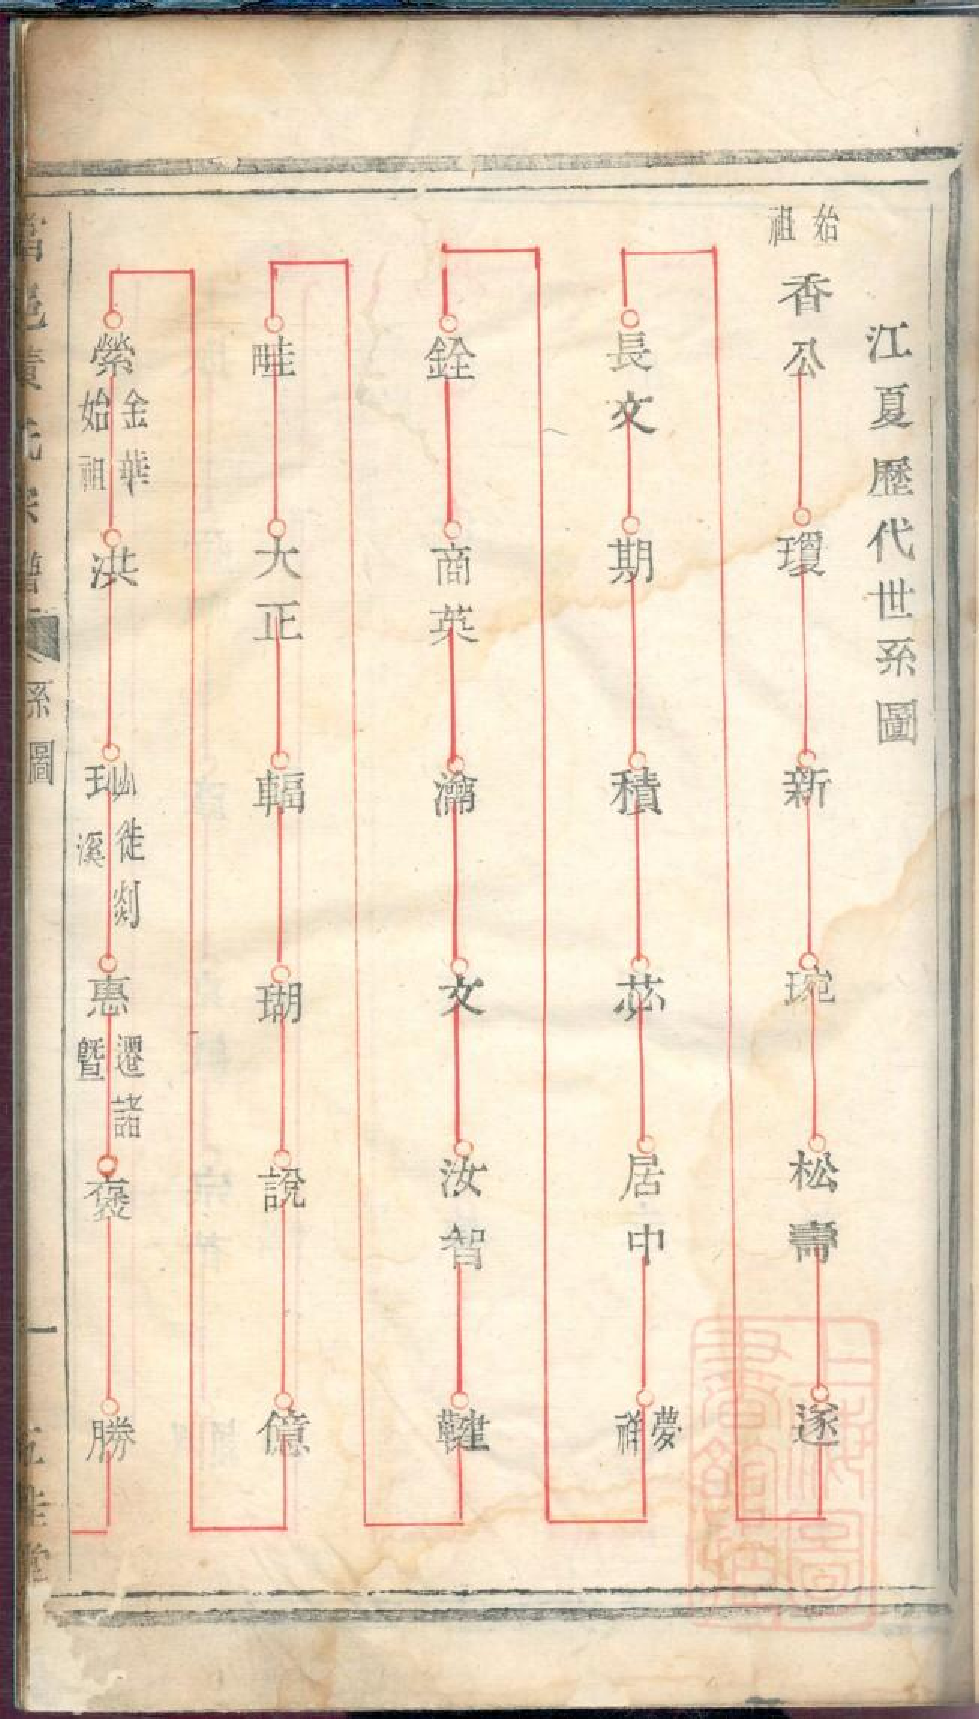 江夏歷代世系圖
始祖
香公
瓊
新
琬
松壽
遂
長文
期
積
苾
居中
夢祥
銓
商英
瀹
文
汝智
鞬
畦
大正
輻
瑚
説
億
縈
金華始祖
洪
徙剡溪
惠
遷諸暨
褒
勝
系圖
一